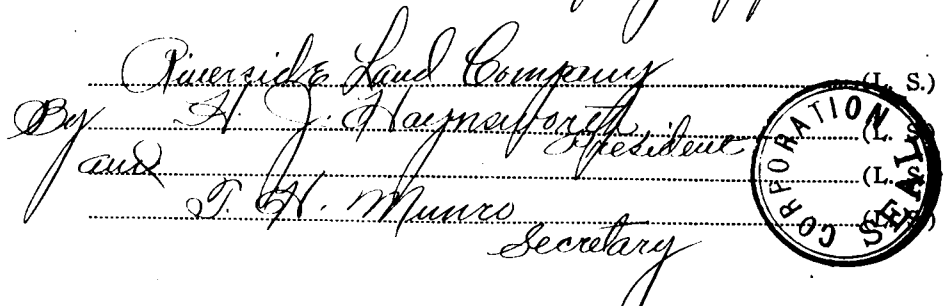 Riverside Land Company (L. S.)
By H. J. Haynsworth, President (L. S.)
and (L. S.)
T. H. Munro (L. S.)
Secretary
CORPORATION SEAL